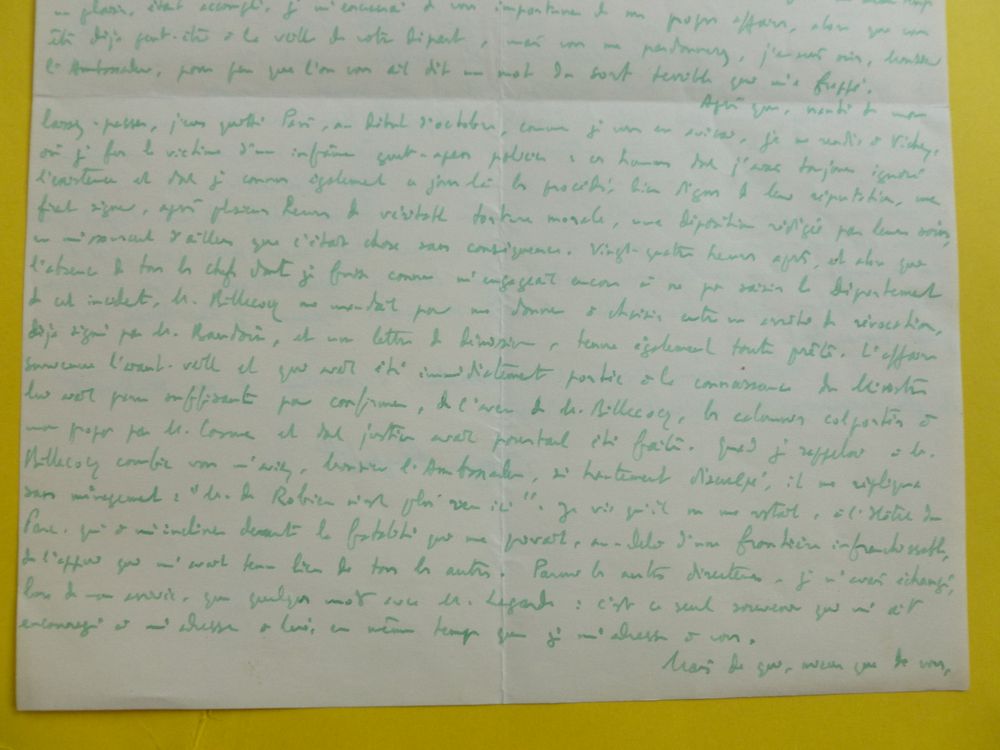 un plaisir, était accompli, je m'excuserai de vous importuner de mes propres affaires, alors que vous
êtes déjà peut-être à la veille de votre départ, mais vous me pardonnerez, j'en suis sûr, Monsieur
l'Ambassadeur, pour peu que l'on vous ait dit un mot du sort terrible qui m'a frappé.
Après que, muni de mon
laissez-passer, j'eus quitté Paris, au début d'octobre, comme je vous en avisai, je me rendis à Vichy,
où je fus la victime d'un infâme guet-apens policier : ces hommes dont j'avais toujours ignoré
l'existence et dont je connus également ce jour-là les procédés, bien dignes de leur réputation, me
firent signer, après plusieurs heures de véritable torture morale, une déposition rédigée par leurs soins,
en m'assurant d'ailleurs que c'était chose sans conséquence. Vingt-quatre heures après, et alors que
l'absence de tous les chefs dont je fusse connu m'engageait encore à ne pas saisir le Département
de cet incident, M. Billecocq me mandait pour me donner à choisir entre un arrêté de révocation,
déjà signé par M. Baudouin, et une lettre de démission, tenue également toute prête. L'affaire
survenue l'avant-veille et qui avait été immédiatement portée à la connaissance du Ministère
lui avait paru suffisante pour confirmer, de l'aveu de M. Billecocq, les calomnies colportées à
mon propos par M. et dont justice avait pourtant été faite. Quand je rappelai à M.
Billecocq combien vous m'aviez, Monsieur l'Ambassadeur, si hautement disculpé, il me répliqua
sans ménagement : "M. de Robien n'est plus rien ici". Je vis qu'il ne me restait, à l'Hôtel du
Parc, qu'à m'incliner devant la fatalité qui me privait, au-delà d'une frontière infranchissable,
de l'appui qui m'avait tenu lieu de tous les autres. Parmi les autres directeurs, je n'avais échangé,
lors de mon arrivée, que quelques mots avec M. Lagarde : c'est ce seul souvenir qui m'ait
encouragé à m'adresser à lui, en même temps que je m'adresse à vous.
Mais de qui, mieux que de vous,